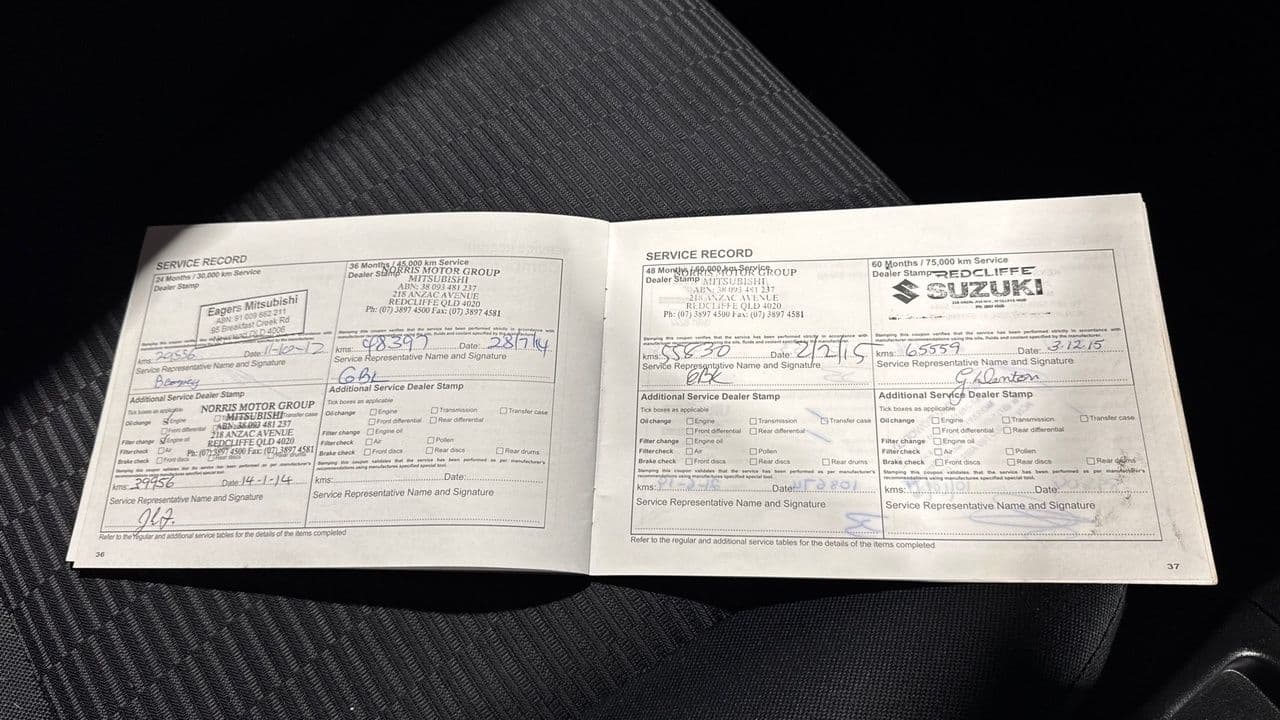 SERVICE RECORD
24 Months / 30,000 km Service
Dealer Stamp
Eagers Mitsubishi
95 Breakfast Creek Rd
Newstead QLD 4006
Stamping this coupon verifies that the service has been performed strictly in accordance with
kms: 29556 Date: 11-10-12
Service Representative Name and Signature
Additional Service Dealer Stamp
Tick boxes as applicable
NORRIS MOTOR GROUP
MITSUBISHI
ABN: 38 093 481 237
218 ANZAC AVENUE
REDCLIFFE QLD 4020
Ph: (07) 3897 4500 Fax: (07) 3897 4581
Oil change Engine Transfer case
Front differential
Filter change Engine oil
Filter check Air
Brake check Front discs Rear drums
Stamping this coupon validates that the service has been performed as per manufacturer's
recommendations using manufactures specified special tool.
kms: 39956 Date: 14-1-14
Service Representative Name and Signature
36 Months / 45,000 km Service
Dealer Stamp
NORRIS MOTOR GROUP
MITSUBISHI
ABN: 38 093 481 237
218 ANZAC AVENUE
REDCLIFFE QLD 4020
Ph: (07) 3897 4500 Fax: (07) 3897 4581
Stamping this coupon verifies that the service has been performed strictly in accordance with
kms: 48397 Date: 28/7/14
Service Representative Name and Signature
Additional Service Dealer Stamp
Tick boxes as applicable
Oil change Engine Transmission Transfer case
Front differential Rear differential
Filter change Engine oil
Filter check Air Pollen
Brake check Front discs Rear discs Rear drums
Stamping this coupon validates that the service has been performed as per manufacturer's
recommendations using manufactures specified special tool.
kms: Date:
Service Representative Name and Signature
Refer to the regular and additional service tables for the details of the items completed
36
SERVICE RECORD
48 Months / 60,000 km Service
Dealer Stamp
NORRIS MOTOR GROUP
MITSUBISHI
ABN: 38 093 481 237
218 ANZAC AVENUE
REDCLIFFE QLD 4020
Ph: (07) 3897 4500 Fax: (07) 3897 4581
Stamping this coupon verifies that the service has been performed strictly in accordance with
manufacturer maintenance requirements using the oils, fluids and coolant specified by the manufacturer.
kms: 55830 Date: 2/2/15
Service Representative Name and Signature
Additional Service Dealer Stamp
Tick boxes as applicable
Oil change Engine Transmission Transfer case
Front differential Rear differential
Filter change Engine oil
Filter check Air Pollen
Brake check Front discs Rear discs Rear drums
Stamping this coupon validates that the service has been performed as per manufacturer's
recommendations using manufactures specified special tool.
kms: Date:
Service Representative Name and Signature
60 Months / 75,000 km Service
Dealer Stamp
REDCLIFFE
SUZUKI
Stamping this coupon verifies that the service has been performed strictly in accordance with
manufacturer maintenance requirements using the oils, fluids and coolant specified by the manufacturer.
kms: 65559 Date: 3.12.15
Service Representative Name and Signature
G Denton
Additional Service Dealer Stamp
Tick boxes as applicable
Oil change Engine Transmission Transfer case
Front differential Rear differential
Filter change Engine oil
Filter check Air Pollen
Brake check Front discs Rear discs Rear drums
Stamping this coupon validates that the service has been performed as per manufacturer's
recommendations using manufactures specified special tool.
kms: Date:
Service Representative Name and Signature
Refer to the regular and additional service tables for the details of the items completed
37